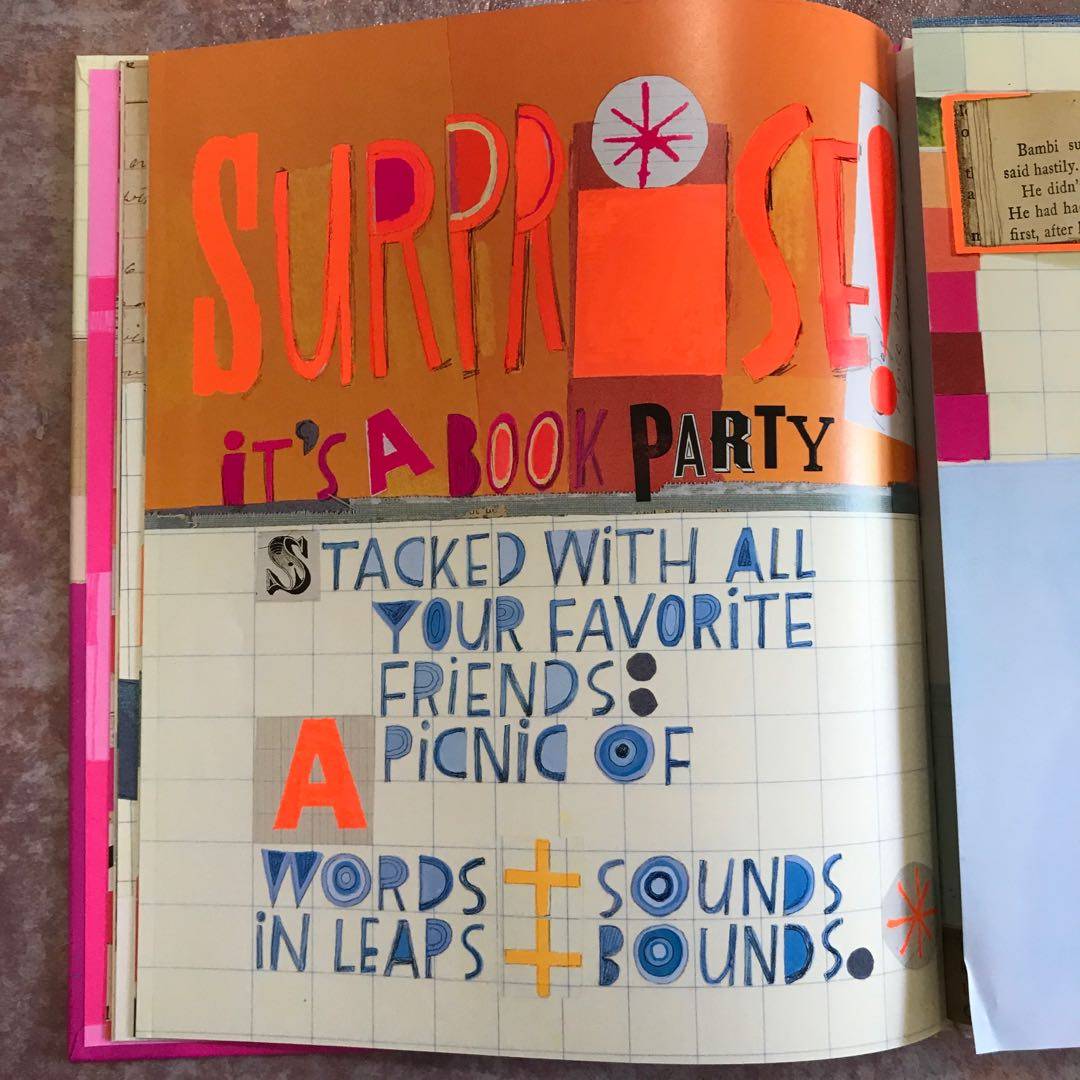 SURPRiSE!
iT'S A BOOK PARTY
STACKED WiTH ALL
YOUR FAVORiTE
FRiENDS:
A PiCNiC OF
WORDS + SOUNDS
iN LEAPS + BOUNDS.
Bambi
said hastily.
He didn'
He had
first, after